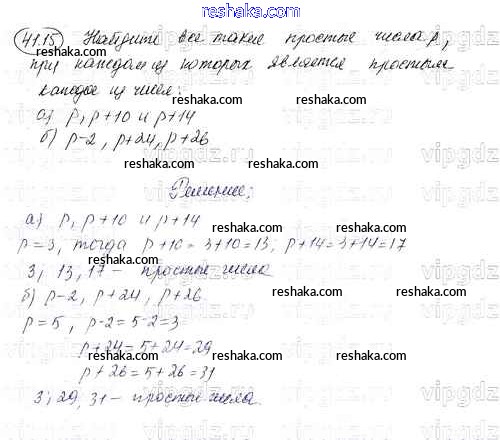 www.reshaka.com
41.15 Найдите все такие простые числа p,
при каждом из которых является простым
каждое из чисел:
reshaka.com
а) p, p+10 и p+14
reshaka.com
б) p-2, p+24, p+26
reshaka.com reshaka.com
Решение:
reshaka.com
а) p, p+10 и p+14
reshaka.com
p=3, тогда p+10=3+10=13, p+14=3+14=17
3, 13, 17 - простые числа
reshaka.com
б) p-2, p+24, p+26
reshaka.com reshaka.com
p=5, p-2=5-2=3
reshaka.com
p+24=5+24=29
reshaka.com
p+26=5+26=31
reshaka.com
3, 29, 31 - простые числа.
reshaka.com
vipgdz.ru